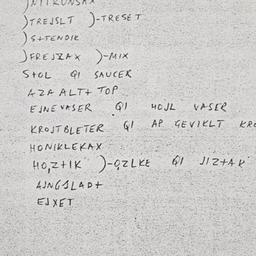 TREJSLT )-TRESET
S+TENDIK
FREJZAX )-MIX
S+OL GI SAUCER
AZA ALT+ TOP
EJNEVASER GI HOJL VASER
KROJTBLETER GI AP GEVIKLT KRO
HONIKLEKAX
HO,Z+IK )-GZLKE GI JIZ+AK
AJNGSLAD+
EJXET